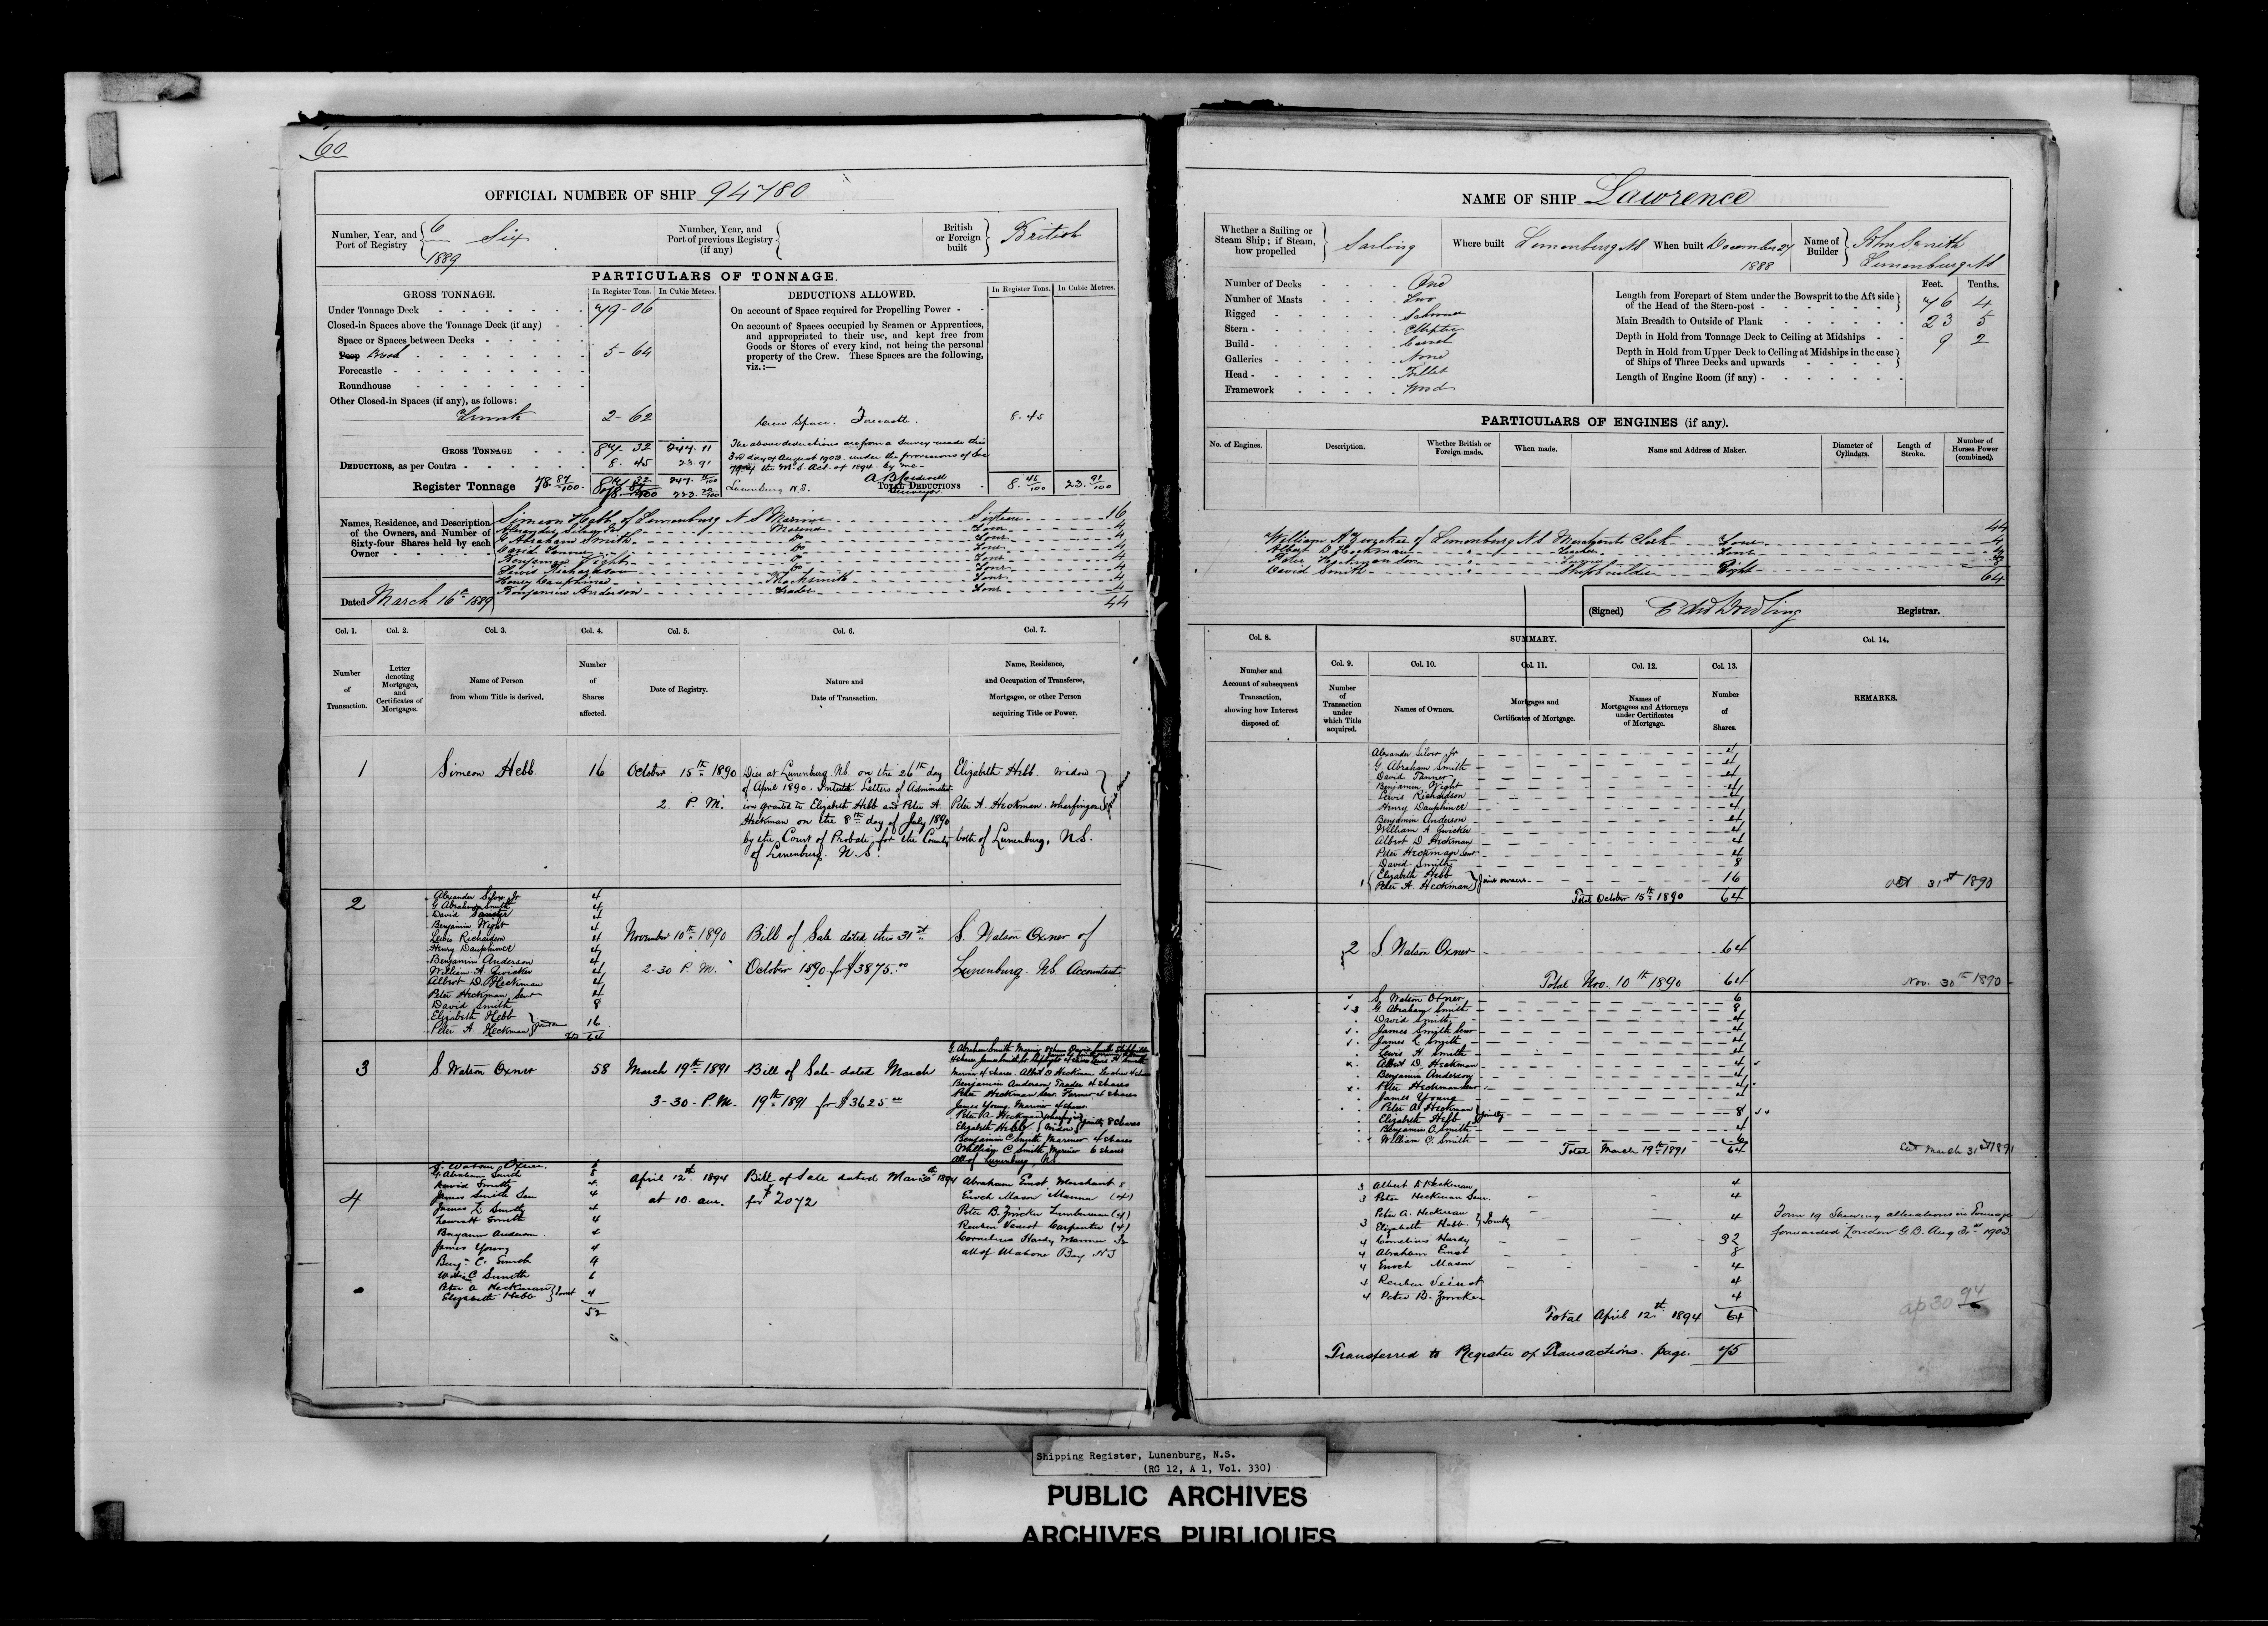 60
OFFICIAL NUMBER OF SHIP 94780
Number, Year, and Port of Registry { 6 Six 1889
Number, Year, and Port of previous Registry (if any) {
British or Foreign built } British
PARTICULARS OF TONNAGE.
GROSS TONNAGE.
In Register Tons. In Cubic Metres.
DEDUCTIONS ALLOWED.
In Register Tons. In Cubic Metres.
Under Tonnage Deck 79-06
On account of Space required for Propelling Power
Closed-in Spaces above the Tonnage Deck (if any)
On account of Spaces occupied by Seamen or Apprentices, and appropriated to their use, and kept free from Goods or Stores of every kind, not being the personal property of the Crew. These Spaces are the following, viz.:—
Space or Spaces between Decks
Poop Break 5-64
Forecastle
Roundhouse
Other Closed-in Spaces (if any), as follows:
Trunk 2-62
Crew Space. Forecastle. 8.45
GROSS TONNAGE 87.32 247.11
The above deductions are from a Survey made this
3rd day of August 1903 under the provisions of Sec
of the M.S. Act of 1894 by me
DEDUCTIONS, as per Contra 8.45 23.91
Register Tonnage 78 87/100
Lunenburg N.S. Surveyor
TOTAL DEDUCTIONS 8 45/100 23 91/100
Names, Residence, and Description of the Owners, and Number of Sixty-four Shares held by each Owner
Simeon Hebb of Lunenburg N S Mariner Sixteen 16
Alexander Silver Jr Mariner Four 4
G Abraham Smith Do Four 4
David Tanner Do Four 4
Benjamin Wight Do Four 4
Lewis Richardson Do Four 4
Henry Dauphinee Blacksmith Four 4
Benjamin Anderson Trader Four 4
44
Dated March 16th 1889
Col. 1. Col. 2. Col. 3. Col. 4. Col. 5. Col. 6. Col. 7.
Number of Transaction.
Letter denoting Mortgages, and Certificates of Mortgages.
Name of Person from whom Title is derived.
Number of Shares affected.
Date of Registry.
Nature and Date of Transaction.
Name, Residence, and Occupation of Transferee, Mortgagee, or other Person acquiring Title or Power.
1 Simeon Hebb 16 October 15th 1890 Dies at Lunenburg NS. on the 26th day Elizabeth Hebb. Widow
of April 1890. Intestate Letters of Administrat
2 P.M. ion granted to Elizabeth Hebb and Peter A. Peter A. Heckman. Wharfinger
Heckman on the 8th day of July 1890
by the Court of Probate, for the County both of Lunenburg, N.S.
of Lunenburg. N.S.
2 Alexander Silver Jr 4
G Abraham Smith 4
David Tanner 4
Benjamin Wight 4
Lewis Richardson 4
Henry Dauphinee 4
Benjamin Anderson 4
William A. Zwicker 4
Albert D. Heckman 4
Peter Heckman Senr 4
David Smith 8
Elizabeth Hebb
Peter A. Heckman 16
64
November 10th 1890 Bill of Sale dated this 31st S. Watson Oxner of
2-30 P.M. October 1890 for $3875.00 Lunenburg. NS. Accountant
3 S. Watson Oxner 58 March 19th 1891 Bill of Sale dated March
3-30-P.M. 19th 1891 for $3625.00
Benjamin Anderson Trader 4 Shares
Peter Heckman Senr. Farmer 4 Shares
James Young Mariner 4 Shares
Peter A. Heckman Wharfinger
Elizabeth Hebb Widow Jointly 8 Shares
Benjamin C Smith Mariner 4 Shares
William C Smith Mariner 6 Shares
All of Lunenburg, NS
4 S. Watson Oxner
G. Abraham Smith 8
David Smith 4
James Smith Sen 4
James L Smith 4
Lewis H Smith 4
Benjamin Anderson 4
James Young 4
Benjn C. Smith 4
William C Smith 6
Peter A Heckman
Elizabeth Hebb } Joint 4
52
April 12th 1894 Bill of Sale dated Mar 30th 1894
at 10. am. for $2072
Abraham Ernst Merchant 8
Enoch Mason Mariner (4)
Peter B. Zwicker Lumberman (4)
Reuben Veinot Carpenter (4)
Cornelius Hardy Mariner 32
all of Mahone Bay N S
NAME OF SHIP Lawrence
Whether a Sailing or Steam Ship; if Steam, how propelled } Sailing
Where built Lunenburg NS
When built December 27 1888
Name of Builder } John Smith Lunenburg NS
Number of Decks One
Number of Masts Two
Rigged Schooner
Stern Elliptic
Build Carvel
Galleries None
Head Billet
Framework Wood
Feet. Tenths.
Length from Forepart of Stem under the Bowsprit to the Aft side of the Head of the Stern-post 76 4
Main Breadth to Outside of Plank 23 5
Depth in Hold from Tonnage Deck to Ceiling at Midships 9 2
Depth in Hold from Upper Deck to Ceiling at Midships in the case of Ships of Three Decks and upwards
Length of Engine Room (if any)
PARTICULARS OF ENGINES (if any).
No. of Engines. Description. Whether British or Foreign made. When made. Name and Address of Maker. Diameter of Cylinders. Length of Stroke. Number of Horses Power (combined).
44
William A Zwicker of Lunenburg N S Merchants Clerk Four 4
Albert D Heckman Teacher Four 4
Peter Heckman Senr Farmer Four 4
David Smith Shipbuilder Eight 8
64
(Signed) Edw Dowling Registrar.
Col. 8. SUMMARY. Col. 14.
Col. 9. Col. 10. Col. 11. Col. 12. Col. 13.
Number and Account of subsequent Transaction, showing how Interest disposed of.
Number of Transaction under which Title acquired.
Names of Owners.
Mortgages and Certificates of Mortgage.
Names of Mortgagees and Attorneys under Certificates of Mortgage.
Number of Shares.
REMARKS.
Alexander Silver Jr 4
G Abraham Smith 4
David Tanner 4
Benjamin Wight 4
Lewis Richardson 4
Henry Dauphinee 4
Benjamin Anderson 4
William A. Zwicker 4
Albert D. Heckman 4
Peter Heckman Senr 4
David Smith 8
1 { Elizabeth Hebb
Peter A. Heckman } Joint owners 16
Total October 15th 1890 64
Oct 31st 1890
2 S Watson Oxner 64
Total Nov. 10th 1890 64
Nov. 30th 1890
S. Watson Oxner 6
3 G. Abraham Smith 8
David Smith 4
James Smith Senr 4
James L Smith 4
Lewis H. Smith 4
Albert D. Heckman 4
Benjamin Anderson 4
Peter Heckman Senr 4
James Young 4
Peter A. Heckman
Elizabeth Hebb } Jointly 8
Benjamin C. Smith 4
William C. Smith 6
Total March 19th 1891 64
March 31st 1891
3 Albert D Heckman 4
3 Peter Heckman Senr. 4
3 Peter A. Heckman
Elizabeth Hebb } Jointly 4
4 Cornelius Hardy 32
4 Abraham Ernst 8
4 Enoch Mason 4
4 Reuben Veinot 4
4 Peter B. Zwicker 4
Total April 12th 1894 64
Form 19 Shewing alterations in Tonnage
forwarded London G.B. Aug 31st 1903
ap 30 94
Transferred to Register of Transactions. page. 75
Shipping Register, Lunenburg, N.S.
(RG 12, A 1, Vol. 330)
PUBLIC ARCHIVES
ARCHIVES PUBLIQUES